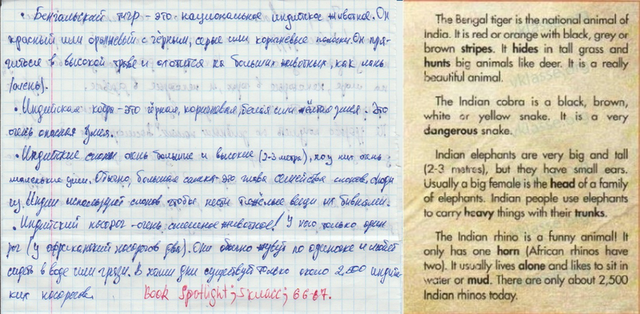 • Бенгальский тигр - это национальное индийское животное. Он
красный или оранжевый с чёрным, серые или коричневые полоски. Он пря-
чется в высокой траве и охотится на больших животных, как лань
(олень).
• Индийская кобра - это чёрная, коричневая, белая или жёлтая змея. Это
очень опасная змея.
• Индийские слоны очень большие и высокие (2-3 метра), но у них очень
маленькие уши. Обычно, большая самка - это глава семейства слонов. Люди
из Индии используют слонов, чтобы нести тяжелые вещи их бивнями.
• Индийский носорог - очень смешное животное! У него только один
рог (у африканских носорогов два). Они обычно живут по одиночке и любят
сидеть в воде или грязи. В наши дни существует только около 2.500 индий-
ких носорогов.
Book Spotlight; 5 класс; 86-87.
The Bengal tiger is the national animal of
India. It is red or orange with black, grey or
brown stripes. It hides in tall grass and
hunts big animals like deer. It is a really
beautiful animal.
The Indian cobra is a black, brown,
white or yellow snake. It is a very
dangerous snake.
Indian elephants are very big and tall
(2-3 metres), but they have small ears.
Usually a big female is the head of a family
of elephants. Indian people use elephants
to carry heavy things with their trunks.
The Indian rhino is a funny animal! It
only has one horn (African rhinos have
two). It usually lives alone and likes to sit in
water or mud. There are only about 2,500
Indian rhinos today.